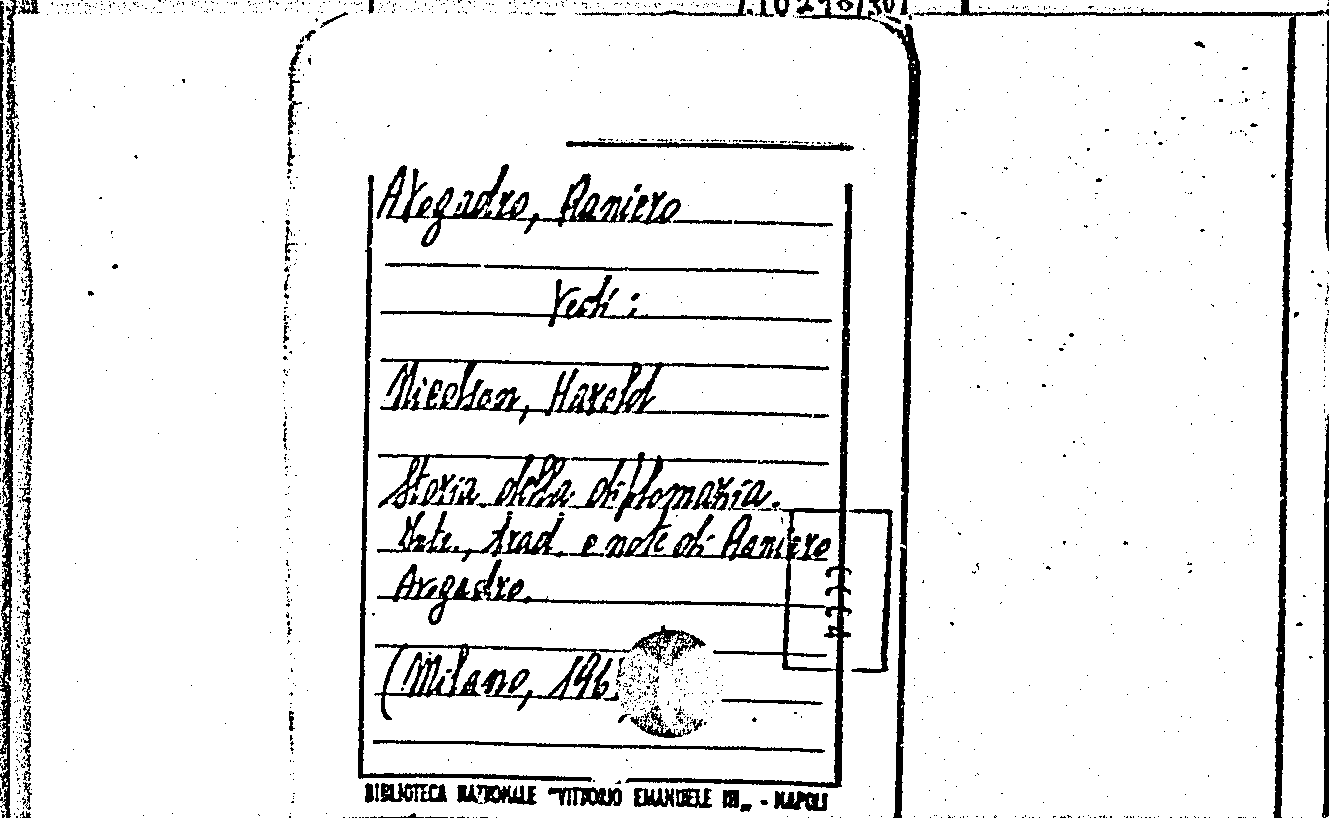 Avogadro, Raniero
Vedi:
Nicolson, Harold
Storia della diplomazia.
Intr., trad. e note di Raniero
Avogadro.
(Milano, 196
BIBLIOTECA NAZIONALE "VITTORIO EMANUELE III„ - NAPOLI